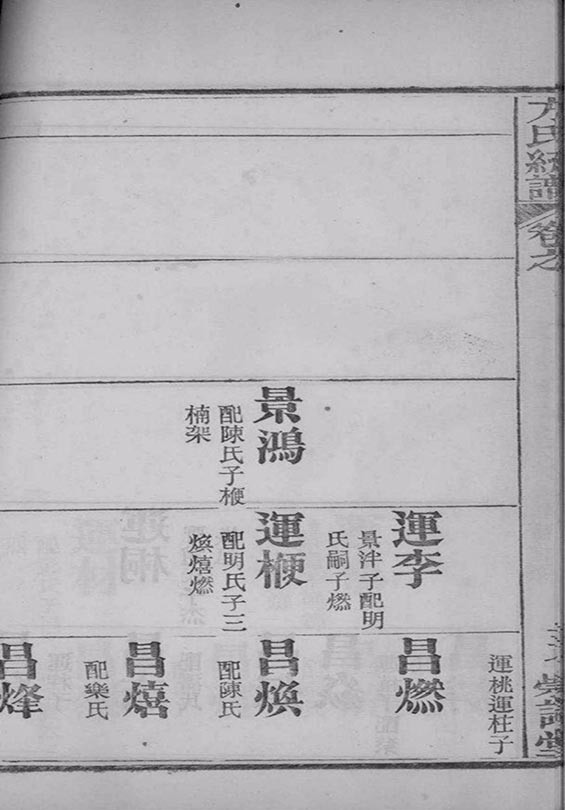 方氏統譜
卷之
景鴻
配陳氏子楩
楠
運李
景泮子配明
氏嗣子燃
運楩
配明氏子三
煥熺燃
運桃運柱子
昌燃
昌煥
配陳氏
昌熺
配樂氏
昌烽